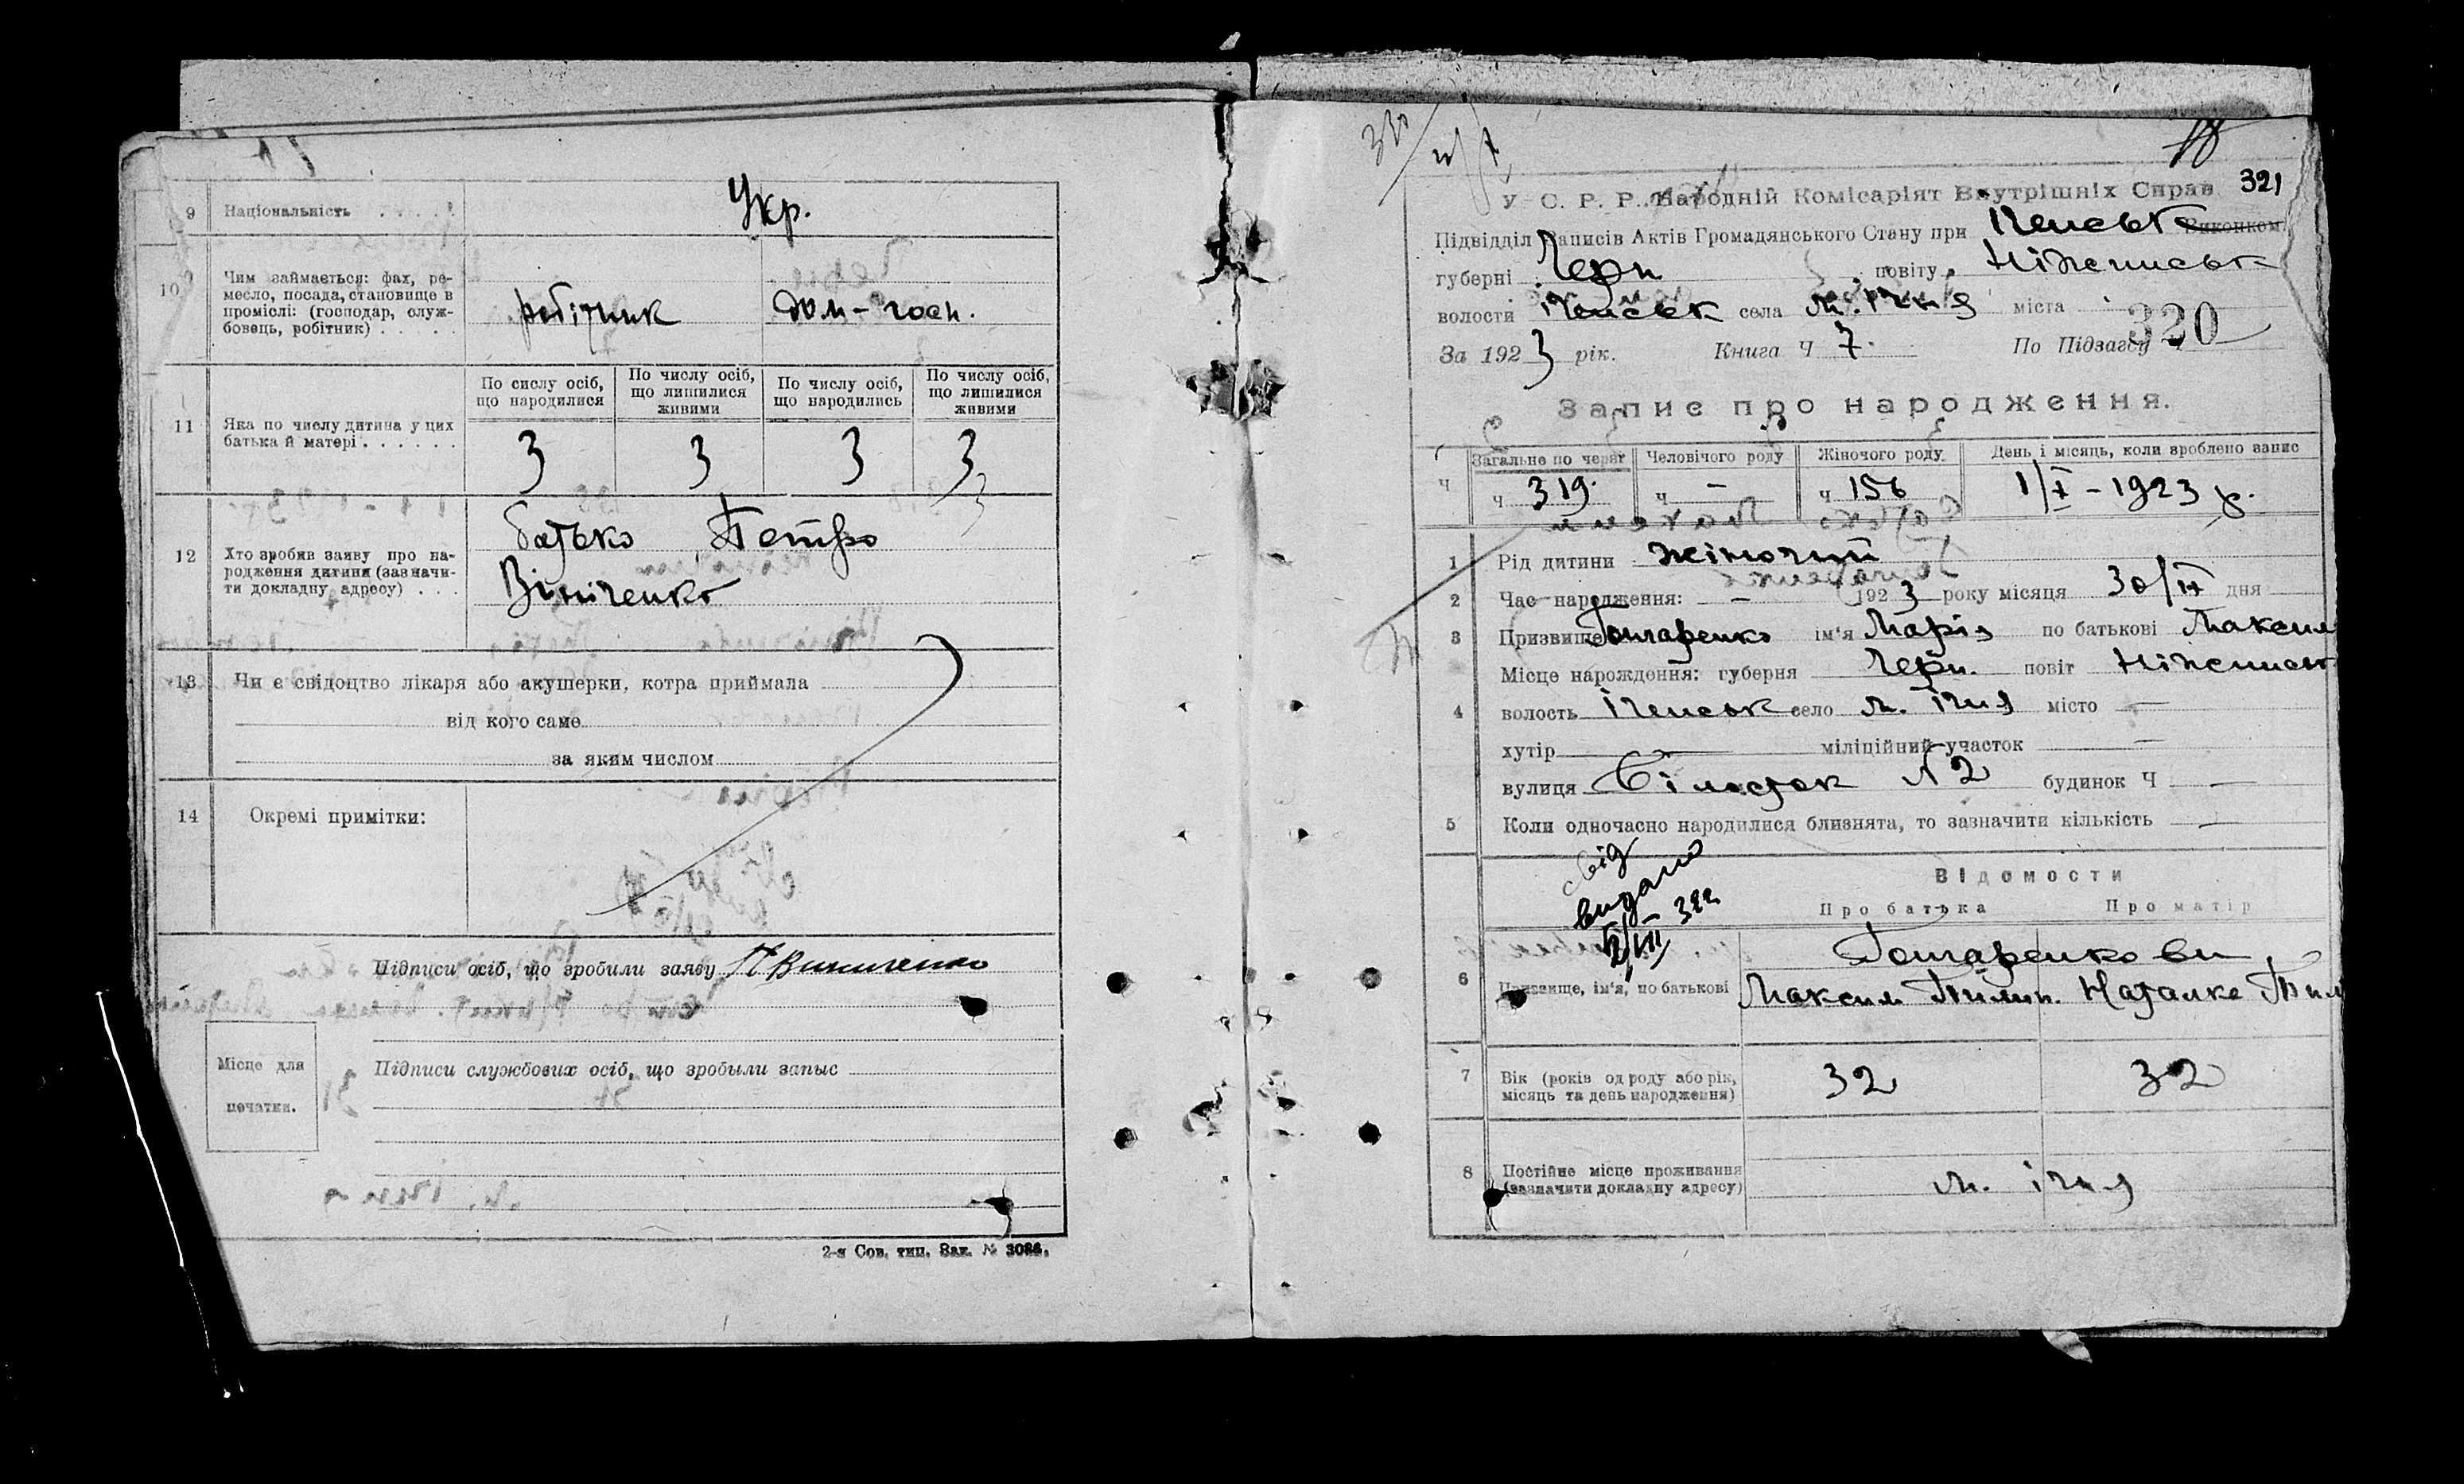 9 Національність . . . . . Укр.
10 Чим займається: фах, ре-
месло, посада, становище в
проміслі: (господар, служ-
бовець, робітник) . . . . .
робітник дом-госп.
По сислу осіб, що народилися
По числу осіб, що лишилися живими
По числу осіб, що народились
По числу осіб, що лишилися живими
11 Яка по числу дитина у цих
батька й матері . . . . . .
3 3 3 3
12 Хто зробив заяву про на-
родження дитини (зазначи-
ти докладну адресу) . . .
батько Петро
Вініченко
13 Чи є свідоцтво лікаря або акушерки, котра приймала
від кого саме
за яким числом
14 Окремі примітки:
Підписи осіб, що зробили заяву П Винниченко
Місце для
печатки.
Підписи службових осіб, що зробыли запыс
2-я Сов. тип. Зак. № 3086.
321
У. С. Р. Р. Народній Комісаріят Внутрішніх Справ
Підвідділ Записів Актів Громадянського Стану при Іченськ Виконком.
губерні Черн повіту Ніженськ
волости Іченськ села м. Ічня міста
320
За 1923 рік. Книга Ч 7. По Підзагсу Ч
Запис про народження.
Загальне по черзі Человічого роду Жіночого роду День і місяць, коли вроблено запис
Ч ч 319. ч — ч 156 1/X - 1923 р.
1 Рід дитини жіночий
2 Час народження: — 1923 року місяця 30/IX дня
3 Призвище Гончаренко ім'я Марія по батькові Максим
Місце нарождення: губерня Черн. повіт Ніженськ
4 волость Іченськ село м. Ічня місто —
хутір — міліційний участок —
вулиця N 2 будинок Ч —
5 Коли одночасно народилися близнята, то зазначити кількість —
свід
видано
Відомости
Про батька Про матір
6 Призвище, ім'я, по батькові
Гончаренкови
Максим Пилип. Наталке Пил
7 Вік (років од роду або рік,
місяць та день народження)
32 32
8 Постійне місце проживання
(зазначити докладну адресу)
м. Ічня